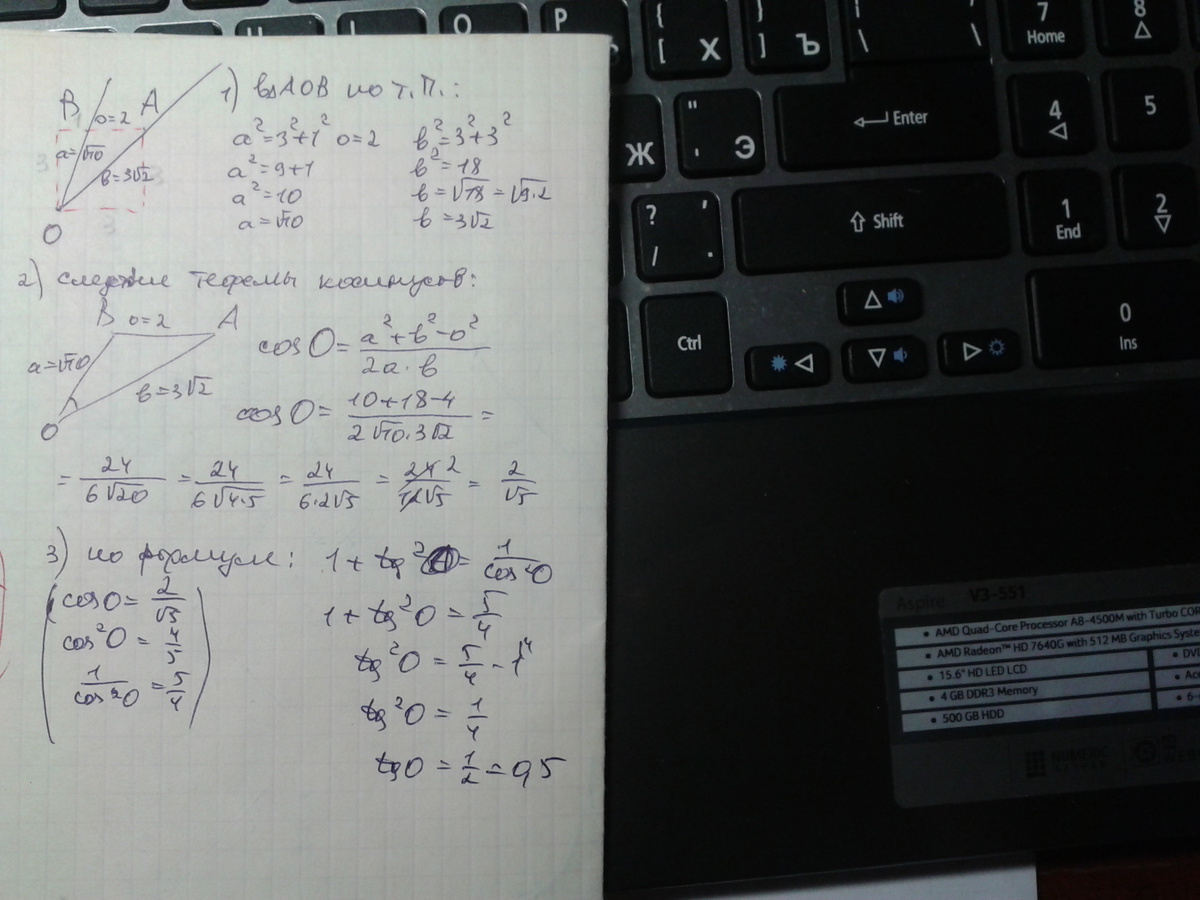 B A 1) в△AOB по т.П.:
1 o=2
a=√10
в=3√2
3 3
3
O
a²=3²+1² o=2 в²=3²+3²
a²=9+1 в²=18
a²=10 в=√18=√9·2
a=√10 в=3√2
2) следствие теоремы косинусов:
B o=2 A
a=√10
в=3√2
O
cosO=(a²+в²-o²)/(2a·в)
cosO=(10+18-4)/(2√10·3√2)=
=24/(6√20)=24/(6√4·5)=24/(6·2√5)=24 2/(12√5)=2/√5
3) по формуле: 1+tg²O=1/cos²O
cosO=2/√5
cos²O=4/5
1/cos²O=5/4
1+tg²O=5/4
tg²O=5/4-1
tg²O=1/4
tgO=1/2=0,5
O P { [ Х } ] Ъ | \ \ 7 Home 8
Ж " ' Э Enter 4 5
? , / . Shift 1 End 2
Ctrl 0 Ins
Aspire V3-551
• AMD Quad-Core Processor A8-4500M with Turbo COR
• AMD Radeon™ HD 7640G with 512 MB Graphics Syste
• 15.6" HD LED LCD
• DVD
• 4 GB DDR3 Memory
• Ace
• 500 GB HDD
• 6-